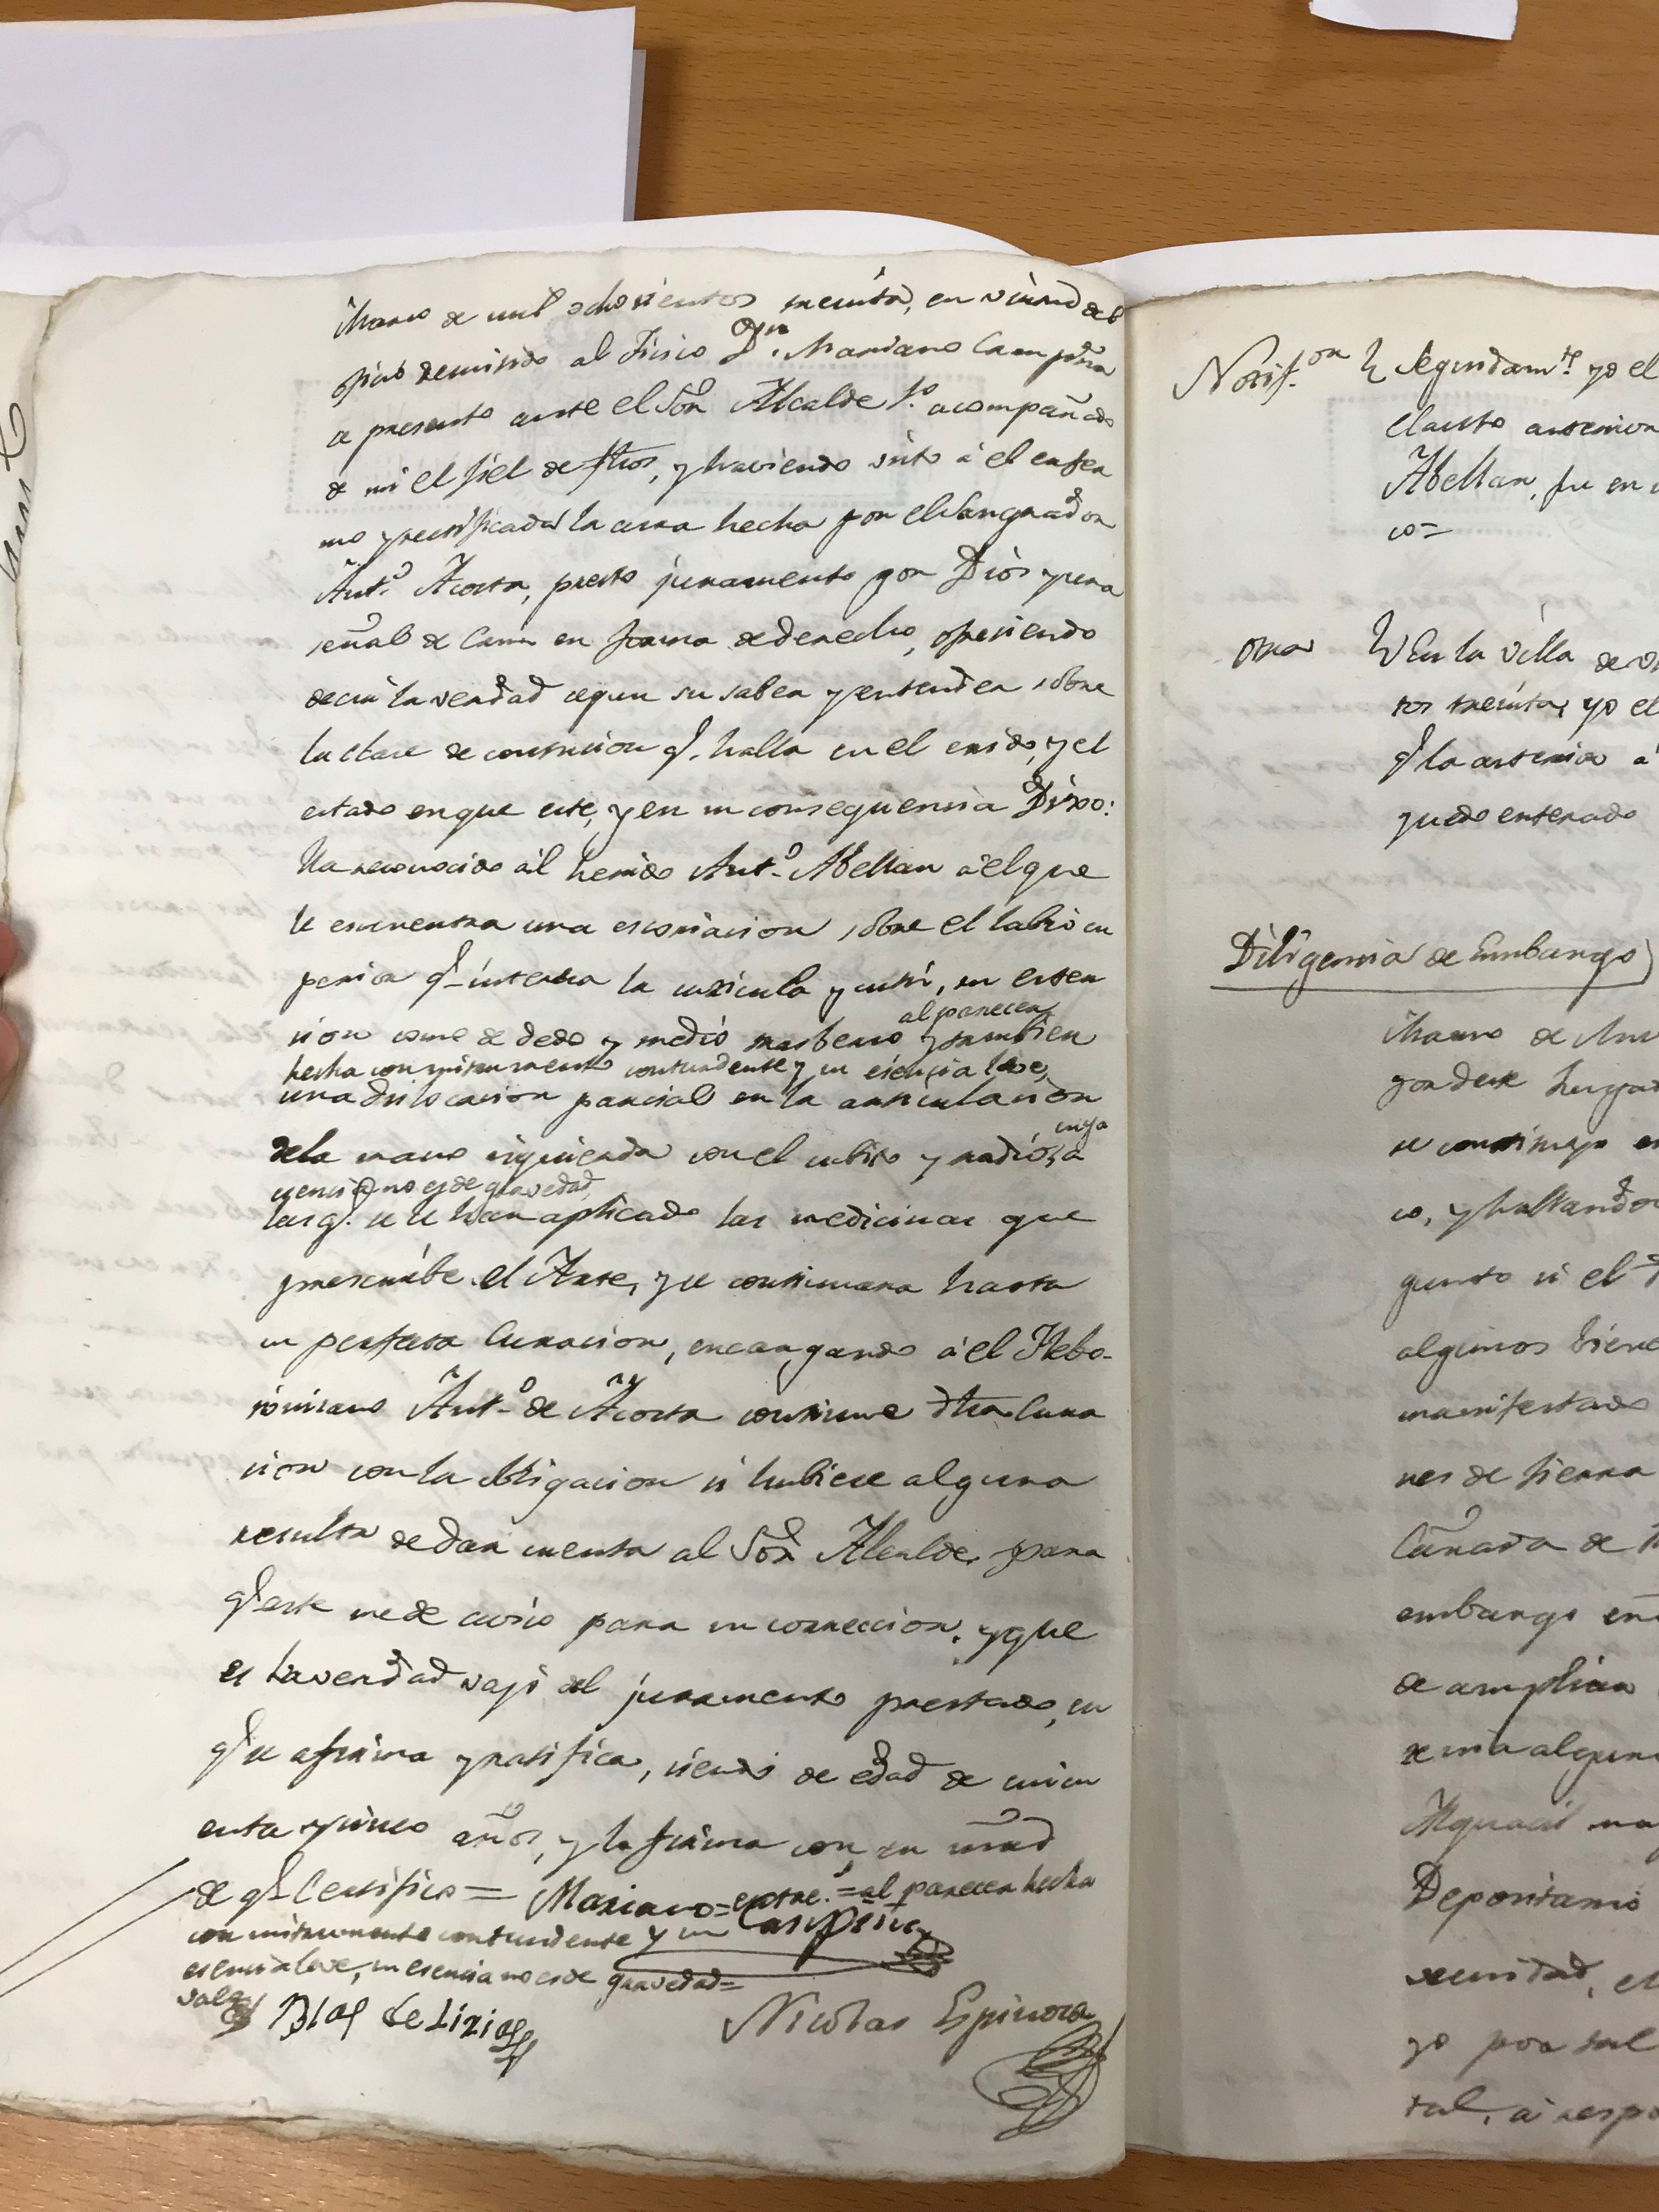 Marzo de mil ochosientos treinta, en virtud del
oficio remitido al Fisico Dn. Mariano Campina
se presento ante el Sor Alcalde 1o. acompañado
de mi el fiel de fhos, y haviendo visto á el enfer
mo y rectificada la cura hecha por el Sangrador
Anto. Acosta, presto juramento por Dios y una
señal de Cruz en forma de derecho, ofreciendo
decir la verdad segun su saber y entender sobre
la clase de contucion q. halla en el erido, y el
estado en que este, y en su consequensia Dixo:
Ha reconocido al herido Anto. Abellan á el que
le encuentra una escoriacion sobre el labio su
perior q. interesa la cuticula y cutis, su esten
sion come de dedo y medio
al parecer
y tambien
hecha con instrumento contundente y su esencia leve,
una dislocacion parcial en la articulacion
de la mano izquierda con el cubito y radio, a
cuya
esencia no es de gravedad,
las q. se le han aplicado las medicinas que
prescribe el Arte, y se continuara hasta
su perfecta Curacion, encargando á el Flebo-
tomiano Anto. de Acosta continue dha Cura
cion con la obligacion si hubiese alguna
resulta de dar cuenta al Sor Alcalde, para
q. este me de aviso para su correccion. y que
es la verdad vajo del juramento prestado, en
q. se afirma y ratifica, siendo de edad de cincu
enta y cinco años, y lo firma con su mrad
de q. Certifico = Mariano = entre. = al parecer hecha
Campina
con instrumento contundente y su
esencia leve, su esencia no es de gravedad =
vale
Blas de Lizi
Nicolas Espinosa
Notif.on Seguidamte. yo el
el auto anterior
Abellan, fu en
co =
otra En la villa de
tos treinta, yo el
q. la anterior á
quedo enterado
Diligensia de Embargo
Marzo de
por dese lugar
se constituyo en
co, y hallando
gunto si el
algunos biene
manifestado
nes de tierra
Cañada de
embargo en
de ampliar
xecia alguna
Alguacil ma
Depositario
vecindad, el
yo por tal
tal, á respo